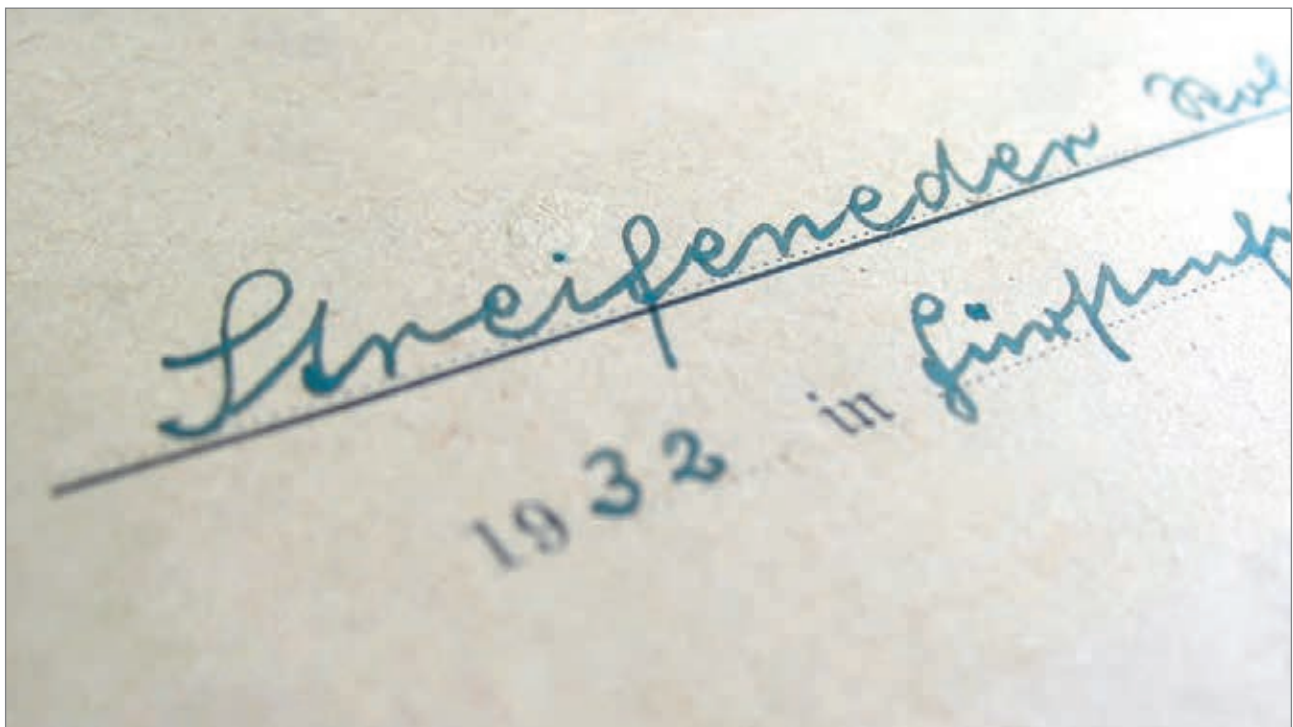 Streifeneder
1932 in